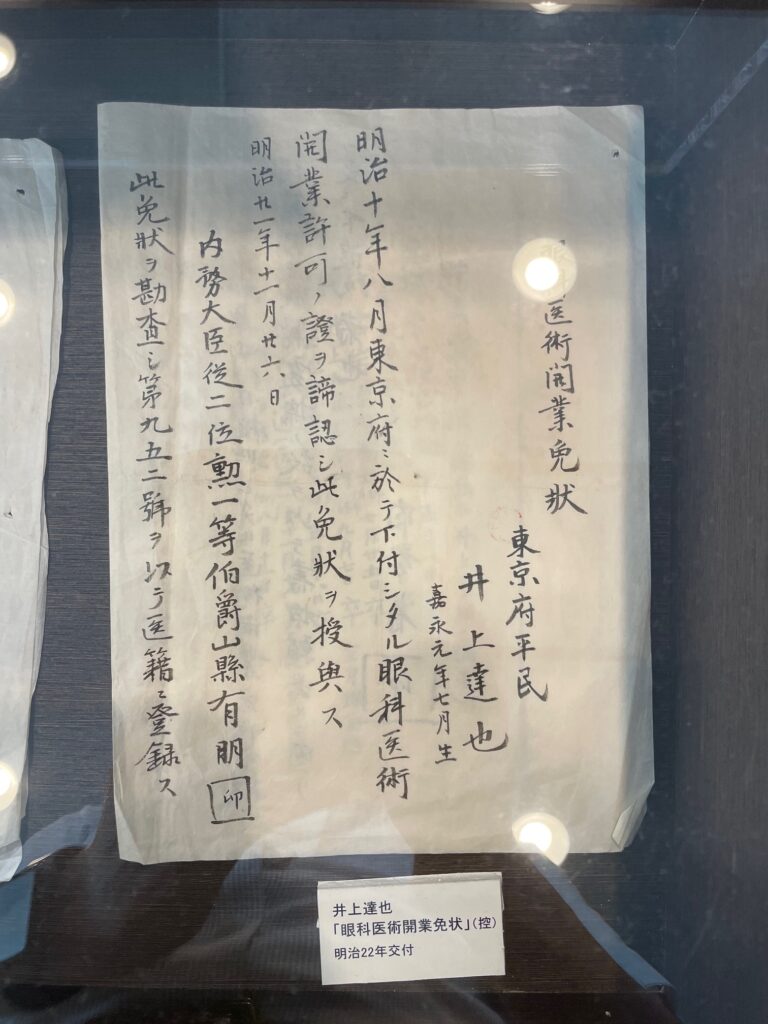 眼科医術開業免狀
東京府平民
井上達也
嘉永元年七月生
明治十年八月東京府ニ於テ下付シタル眼科医術
開業許可ノ證ヲ諦認シ此免狀ヲ授與ス
明治廿一年十一月廿六日
内務大臣従二位勲一等伯爵山縣有朋 印
此免狀ヲ勘査シ第九五二號ヲ以テ医籍ニ登録ス
井上達也
「眼科医術開業免状」(控)
明治22年交付